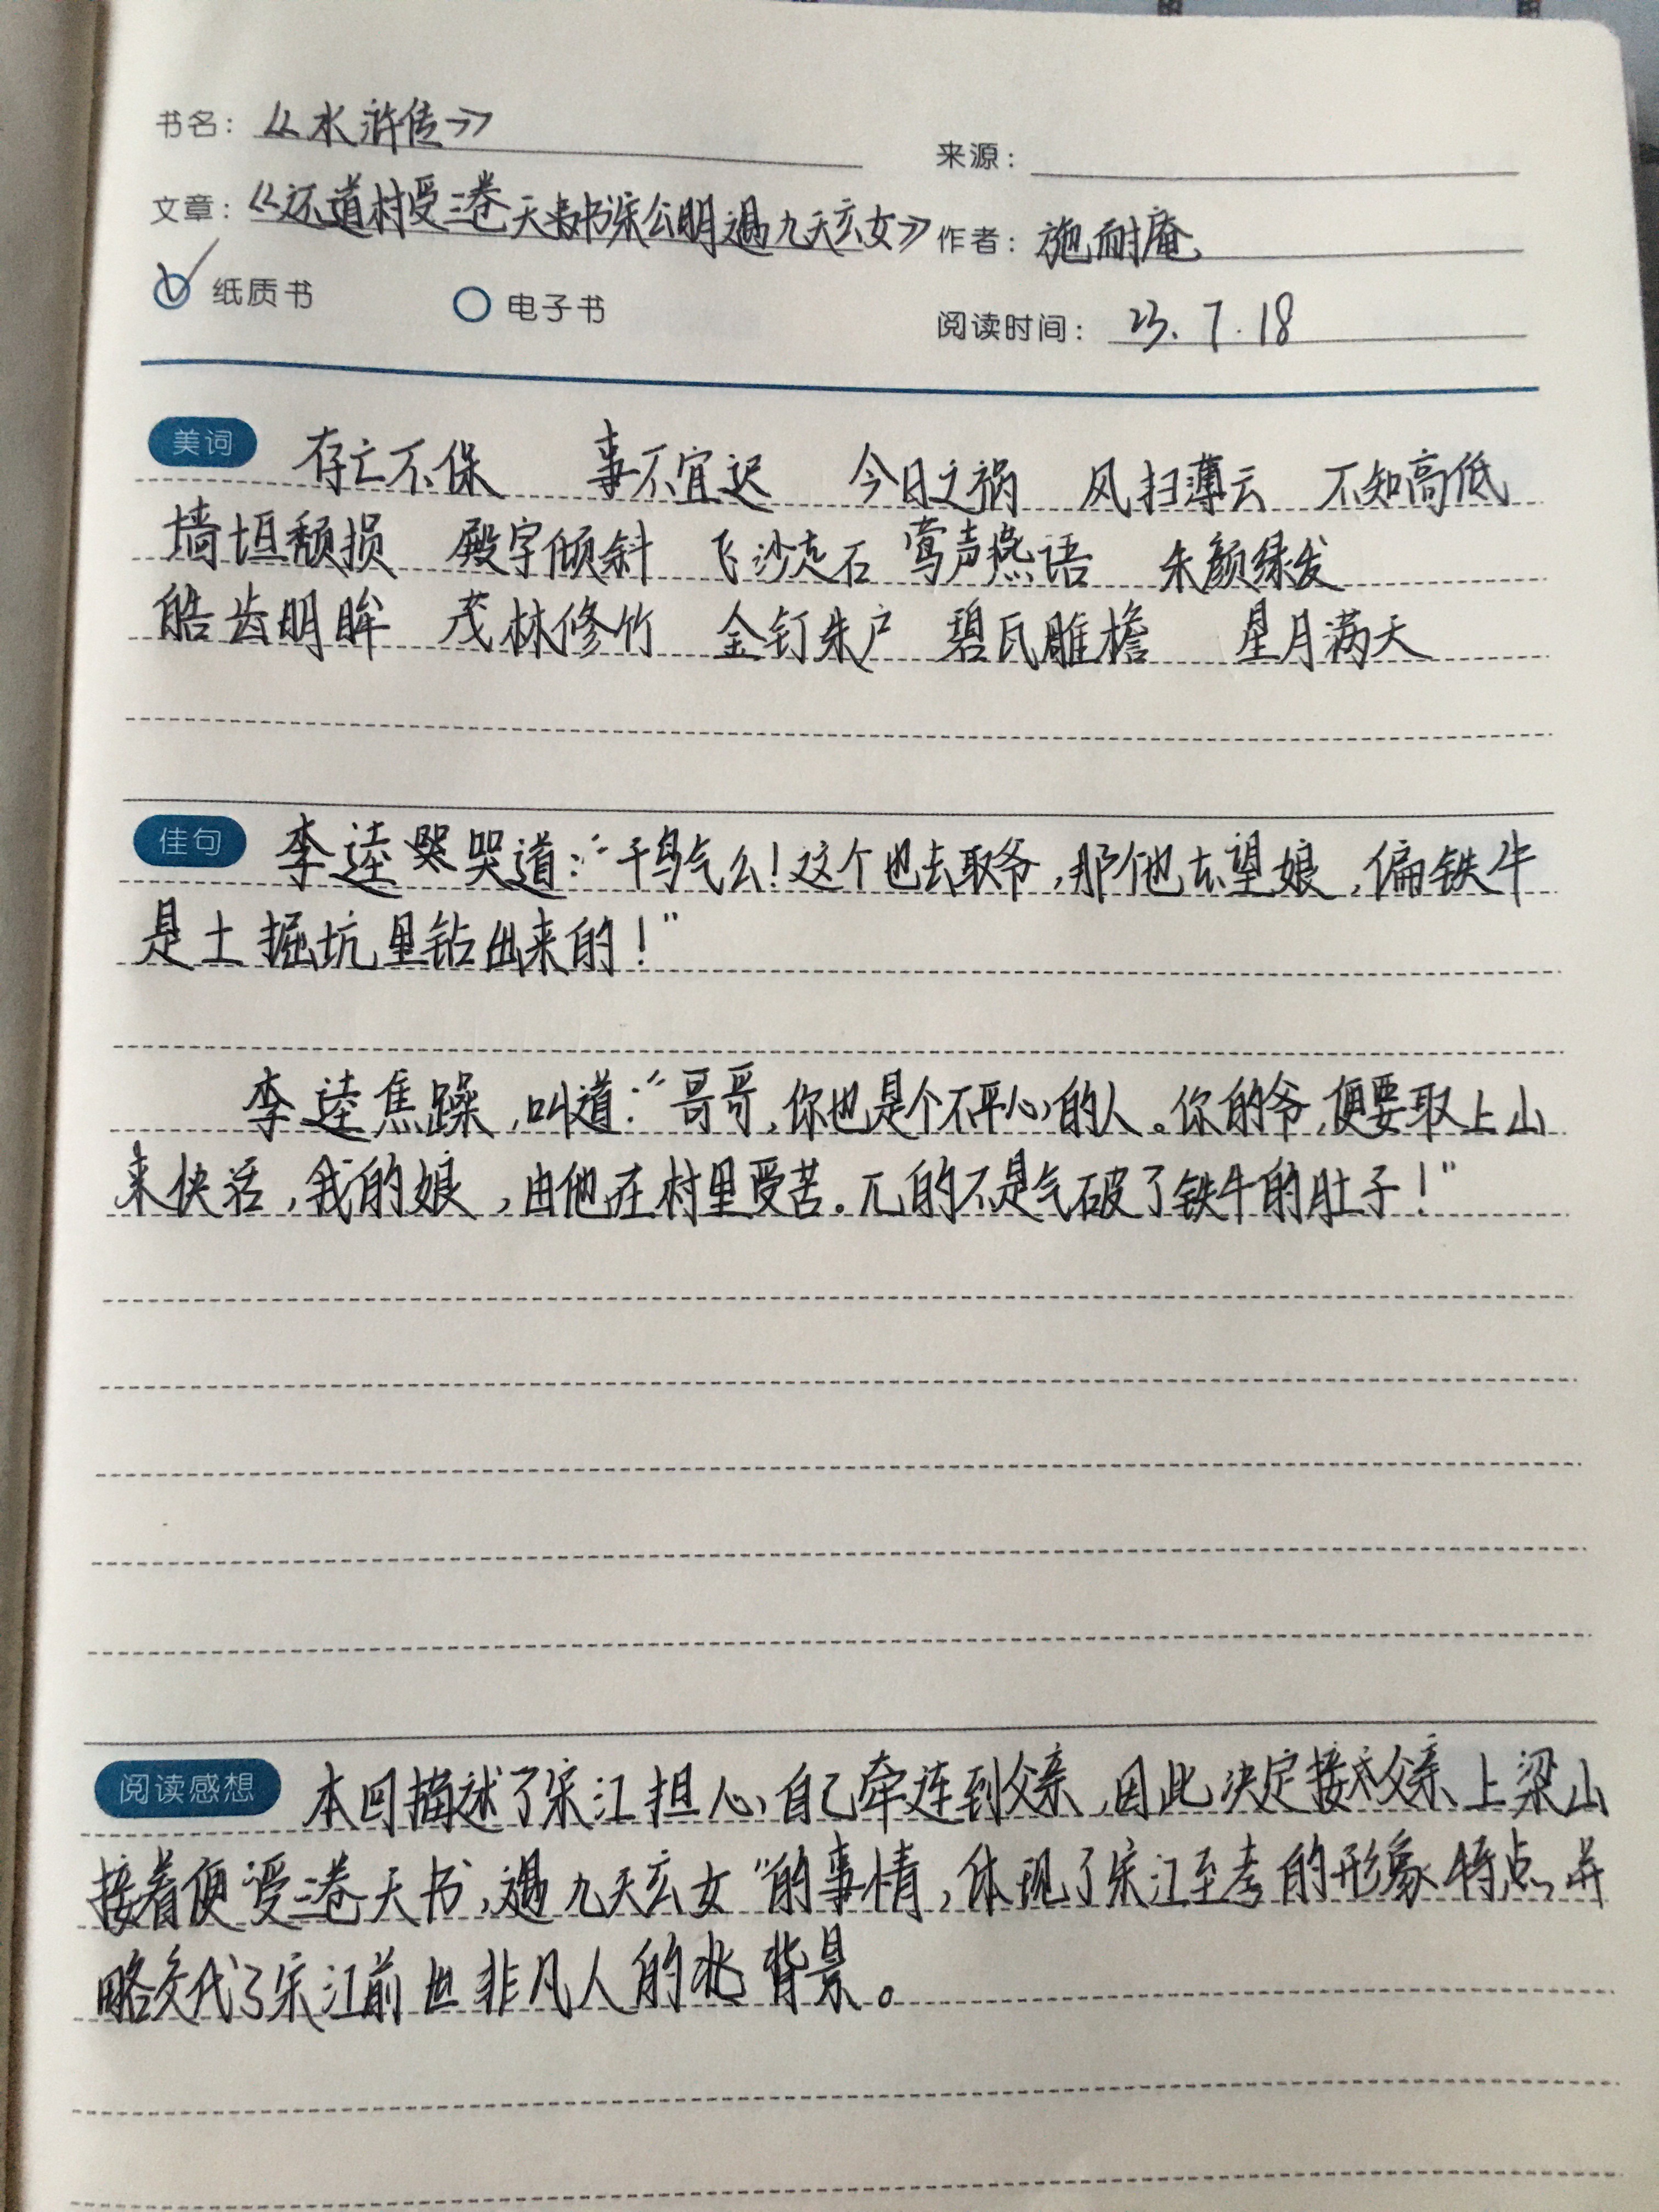 书名：《水浒传》
来源：
文章：《还道村受三卷天书宋公明遇九天玄女》
作者：施耐庵
纸质书 电子书
阅读时间：23.7.18
美词 存亡不保 事不宜迟 今日之祸 风扫薄云 不知高低
墙垣颓损 殿宇倾斜 飞沙走石 莺声燕语 朱颜绿发
皓齿明眸 茂林修竹 金钉朱户 碧瓦雕檐 星月满天
佳句 李逵哭道：“干鸟气么！这个也去取爷，那个也去望娘，偏铁牛
是土掘坑里钻出来的！”
李逵焦躁，叫道：“哥哥，你也是个不平心的人。你的爷，便要取上山
来快活，我的娘，由他在村里受苦。兀的不是气破了铁牛的肚子！”
阅读感想 本回描述了宋江担心自己牵连到父亲，因此决定接父亲上梁山
接着便“受三卷天书，遇九天玄女”的事情，体现了宋江至孝的形象特点，并
略交代了宋江前世非凡人的背景。